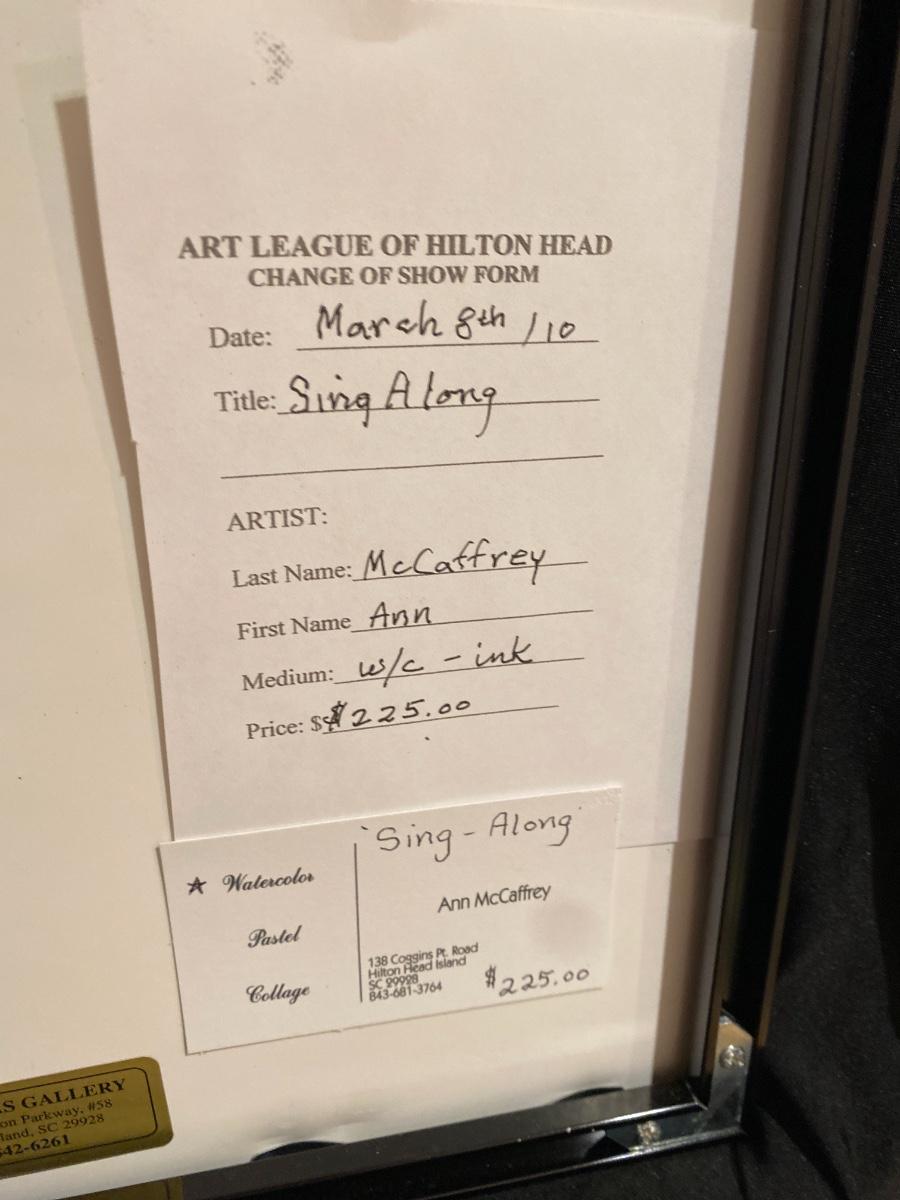 ART LEAGUE OF HILTON HEAD
CHANGE OF SHOW FORM
Date: March 8th /10
Title: Sing Along
ARTIST:
Last Name: McCaffrey
First Name Ann
Medium: w/c - ink
Price: $$225.00
"Sing-Along"
☆ Watercolor
Pastel
Collage
Ann McCaffrey
138 Coggins Pt. Road
Hilton Head Island
SC 29928
843-681-3764
$225.00
S GALLERY
on Parkway, #58
land, SC 29928
42-6261